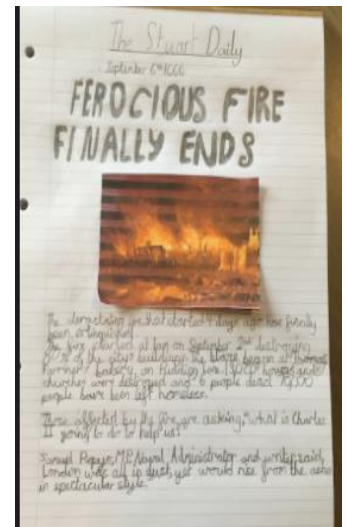 The Stuart Daily
September 6th 1666
FEROCIOUS FIRE
FINALLY ENDS
The devastating fire that started 4 days ago has finally
been extinguished.
The fire started at 1am on September 2nd destroying
of the city's buildings. The blaze began at Thomas
Farriner's bakery, on Pudding Lane. houses and
churches were destroyed and 6 people dead.
people have been left homeless.
Those affected by the fire are asking, "what is Charles
II going to do to help us?"
Samuel Pepys, MP, Naval Administrator and writer said,
London was all in dust, yet would rise from the ashes
in spectacular style.